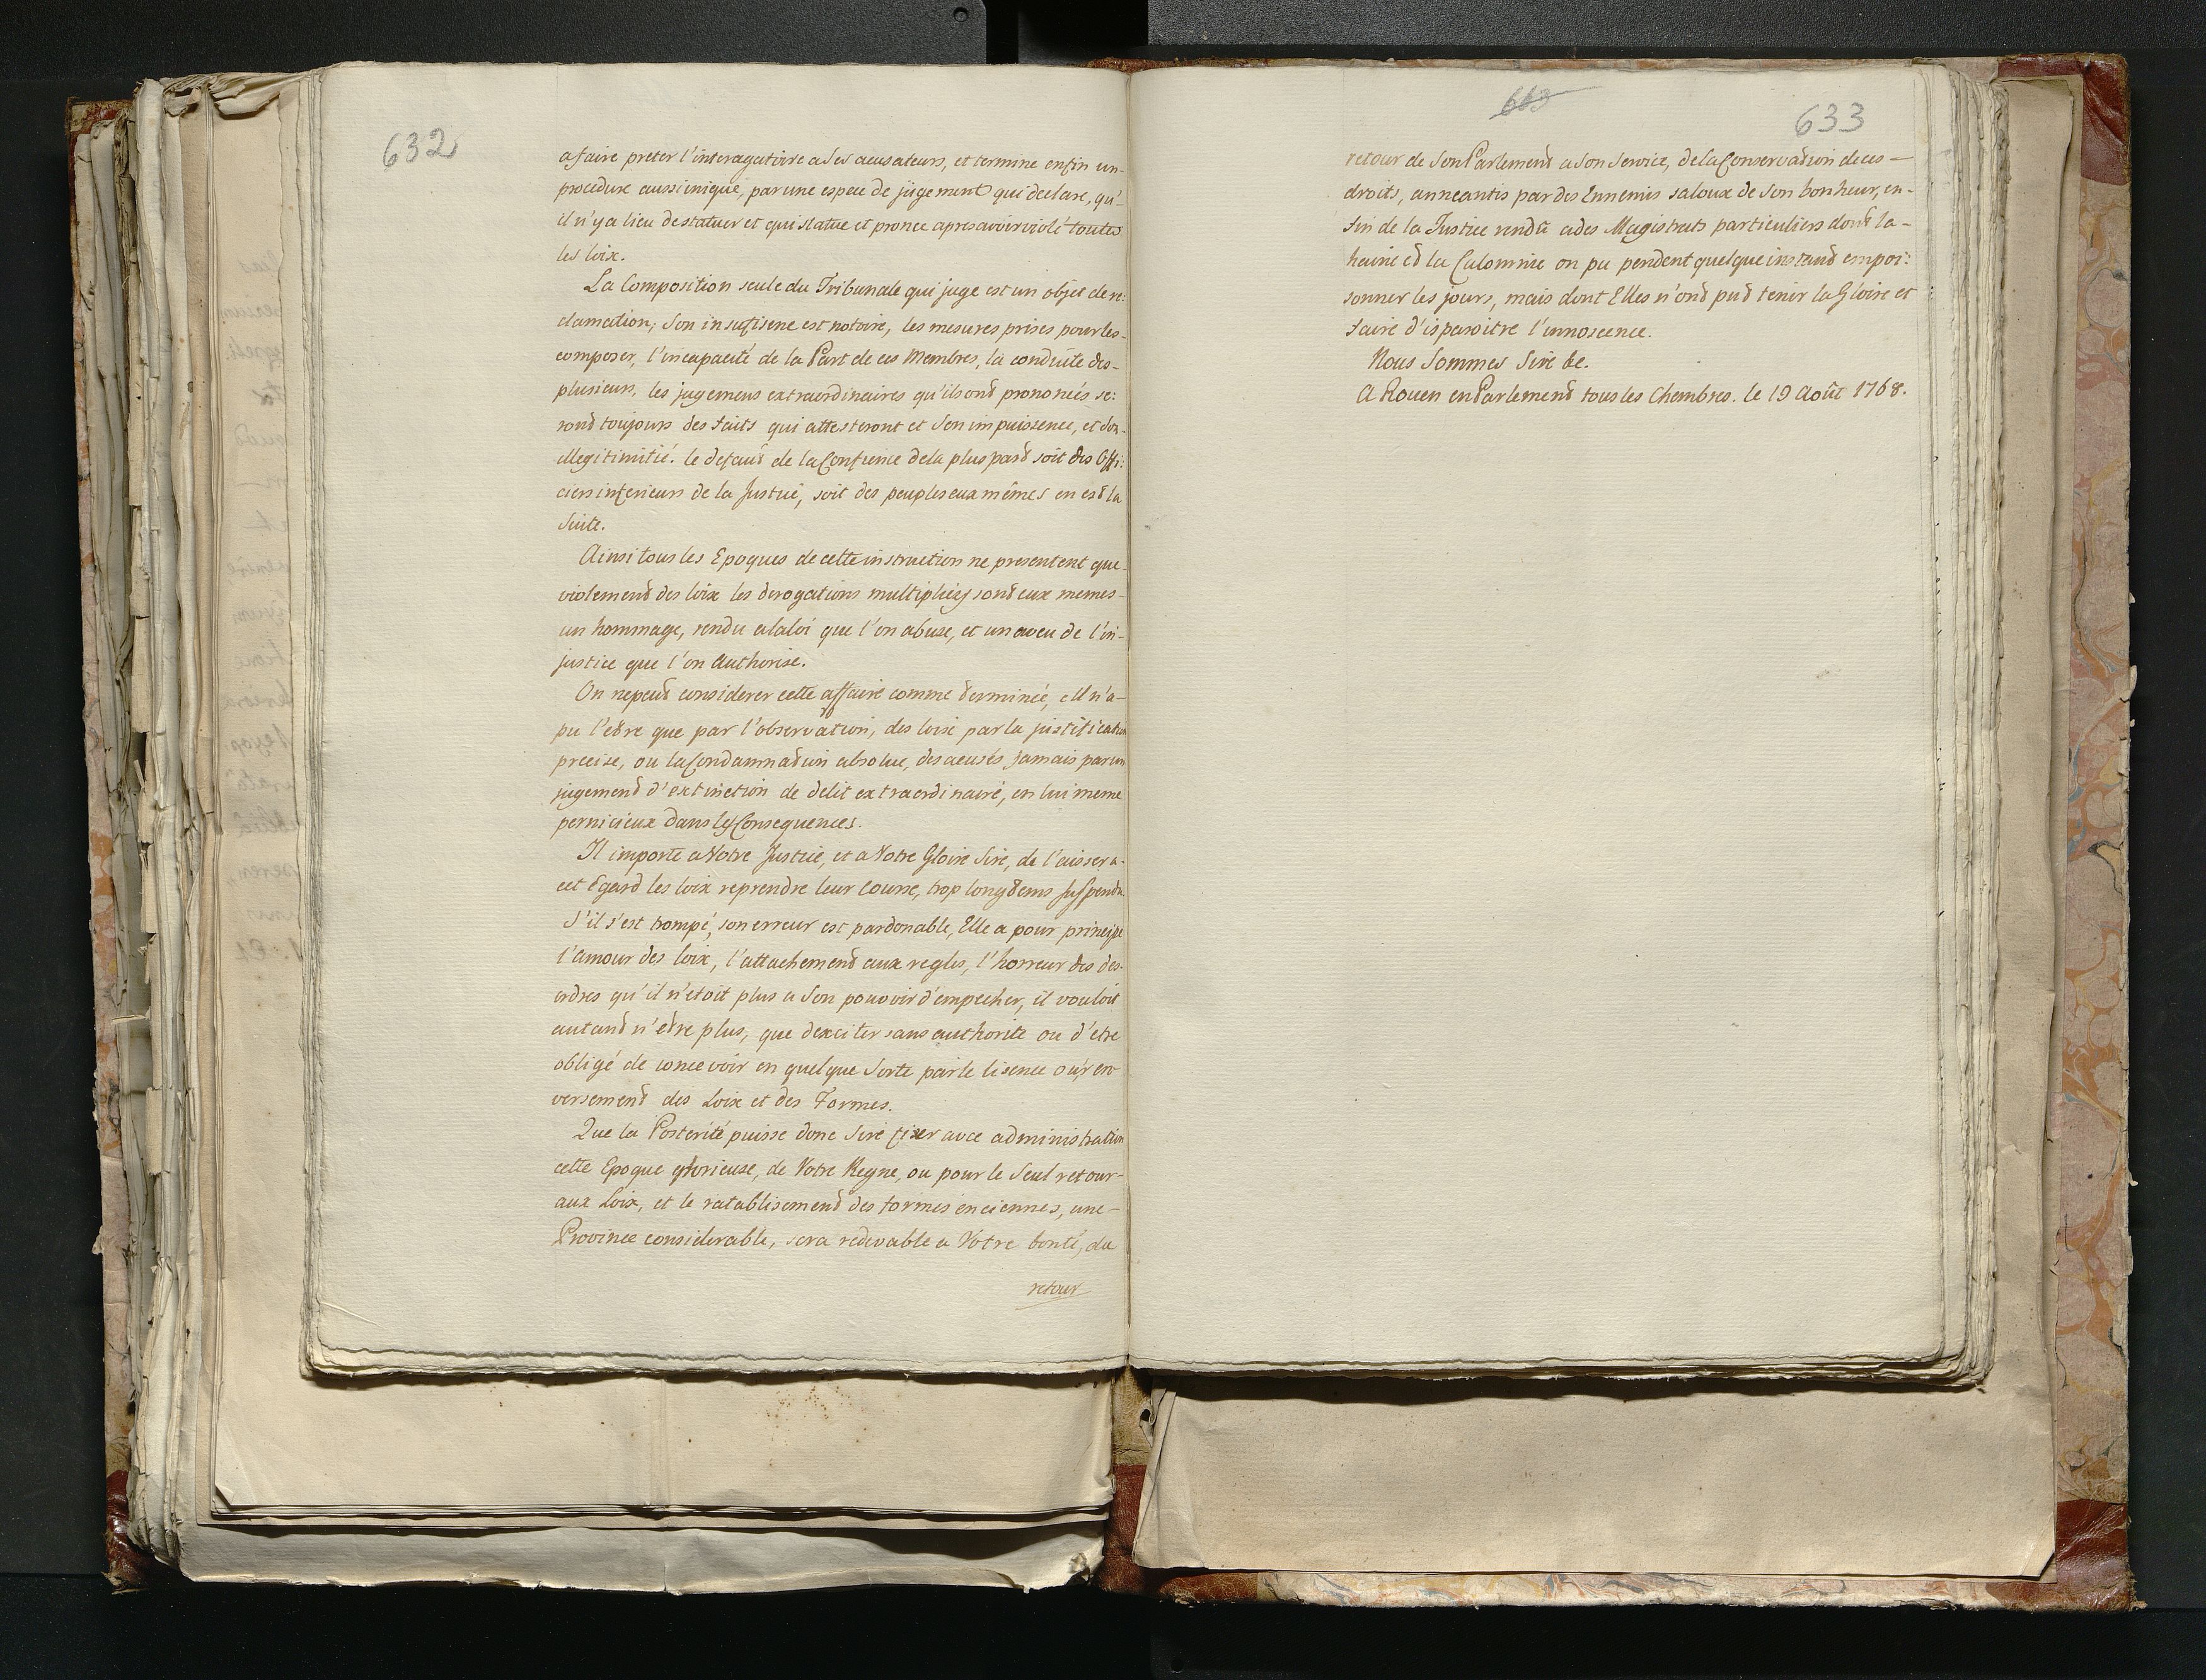 632
a faire preter l'interagatoire a ses acusateurs, et termine enfin un-
procedure aussi inique, par une espece de jugement qui declare, qu'-
il n'y a lieu de statuer et qui statue et prонce apres avoir violé toutes
les loix.
La Composition seule du Tribunale qui juge est un objet de re:
clamation, Son insufisene est notoire, les mesures prises pour les-
composer, l'incapacité de la Part de ces Membres, la conduite des-
plusieurs, les jugemens extraordinaires qu'ils ond prononcés se:
rond toujours des faits qui attesteront et Son impuissence, et Son-
illegitimitié. le defaud de la Confience de la plus pard soit des Offi:
ciers inferieurs de la Justice, soit des peuples eux mêmes en esd la
Suite.
Ainsi tous les Epoques de cette instruction ne presentent que-
violemend des loix les derogations multipliey sond eux memes-
un hommage, rendu a la loi que l'on abuse, et un aveu de l'in-
justice que l'on Authorise.
On ne peud considerer cette affaire comme derminée, ell n'a-
pu l'edre que par l'observation, des loix par la justification
precise, ou la Condamnadion absolue, des acusés Jamais par un
jugemend d'extinction de delit extraordinaire, en lui meme
pernicieux dans les Consequences.
Il importe a Votre Justice, et a Votre Gloire Sire, de l'aisser a-
cet Egard les loix reprendre leur course, trop longdems Suspendu.
S'il s'est trompé, son erreur est pardonable, Elle a pour principe
l'amour des loix, l'attachemend aux regles, l'horreur des des-
ordres qu'il n'etoit plus a Son pouvoir d'empecher, il vouloit
autand n'edre plus, que dexciter sans authorite ou d'etre
obligé de concevoir en quelque Sorte par le lisence ou r'en-
versemend des Loix et des Formes.
Que la Posterité puisse donc Sire fixer avce administration
cette Epoque glorieuse, de Votre Regne, ou pour le Seul retour-
aux Loix, et le ratablisemend des formes enciennes, une-
Province considerable, sera redevable a Votre bonté, du
retour
663
633
retour de Son Parlemend a Son Service, de la Conservadion de ces-
droits, anneantis par des Ennemis saloux de Son bonheur, en-
fin de la Justice rendû a des Magistrats particuliers dont la-
haine ed la Calomnie on pu pendent quelque instand empoi:
sonner les jours, mais dont Elles n'ond pud tenir la Gloire et
faire d'isparoitre l'innoscence.
Nous Sommes Sire &c.
A Rouen en Parlemend tous les Chembres. le 19 Août 1768.